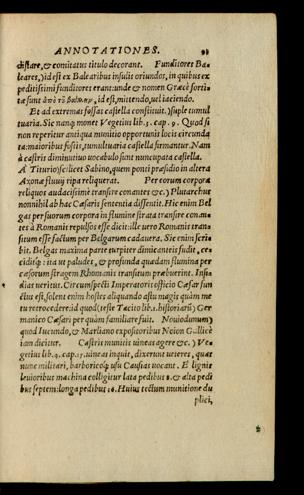 ANNOTATIONES. 93
distare, & comitatus titulo decorant. Funditores Ba-
leares,) id est ex Balearibus insulis oriundos, in quibus ex
peditissimi funditores erant: unde & nomen Græcè sorti-
tæ sunt ἀπὸ τοῦ βάλλειν, id est, mittendo, vel iaciendo.
Et ad extremas fossas castella constituit.) suple tumul
tuaria. Sic nanq; monet Vegetius lib. 3. cap. 9. Quod si
non reperitur antiqua munitio opportunis locis circunda
ta: maioribus fossis, tumultuaria castella firmantur. Nam
à castris diminutiuo uocabulo sunt nuncupata castella.
A Titurio) scilicet Sabino, quem ponti præsidio in altera
Axonæ fluuij ripa reliquerat. Per eorum corpora
reliquos audacissimè transire conantes &c.) Plutarchus
nonnihil ab hac Cæsaris sententia dissentit. Hic enim Bel
gas per suorum corpora in flumine strata transire conan-
tes à Romanis repulsos esse dicit: ille uero Romanis tran-
situm esse factum per Belgarum cadauera. Sic enim scri-
bit. Belgas maxima parte turpiter dimicanteis fudit, ce-
ciditq; : ita ut paludes, & profunda quædam flumina per
cæsorum stragem Rhomanis transitum præbuerint. Insi-
dias ueritus. Circumspecti Imperatoris officio Cæsar fun
ctus est, solent enim hostes aliquando astu magis quàm me
tu retrocedere: id quod (teste Tacito lib. 1. historiarũ) Ger
manico Cæsari per quàm familiare fuit. Nouiodunum)
quod Iucundo, & Marliano expositoribus Noion Gallicè
iam dicitur. Castris munitis uineas agere &c.) Ve-
getius lib. 4. cap. 15. uineas inquit, dixerunt ueteres, quas
nunc militari, barbaricoq; usu Causias uocant. E lignis
leuioribus machina colligitur lata pedibus 8. & alta pedi
bus septem: longa pedibus 16. Huius tectum munitione du
plici,